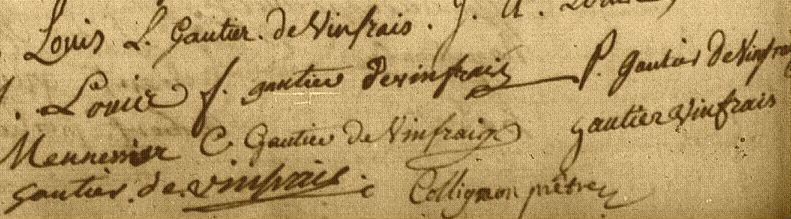 Louis L. Gautier. de Vinfrais. J. A. Louis
Louis f. gautier devinfrais P. gautier DeVinfrais
Mennessier C. Gautier de Vinfraix gautier Vinfrais
gautier. de. vinfrais. Collignon prêtre